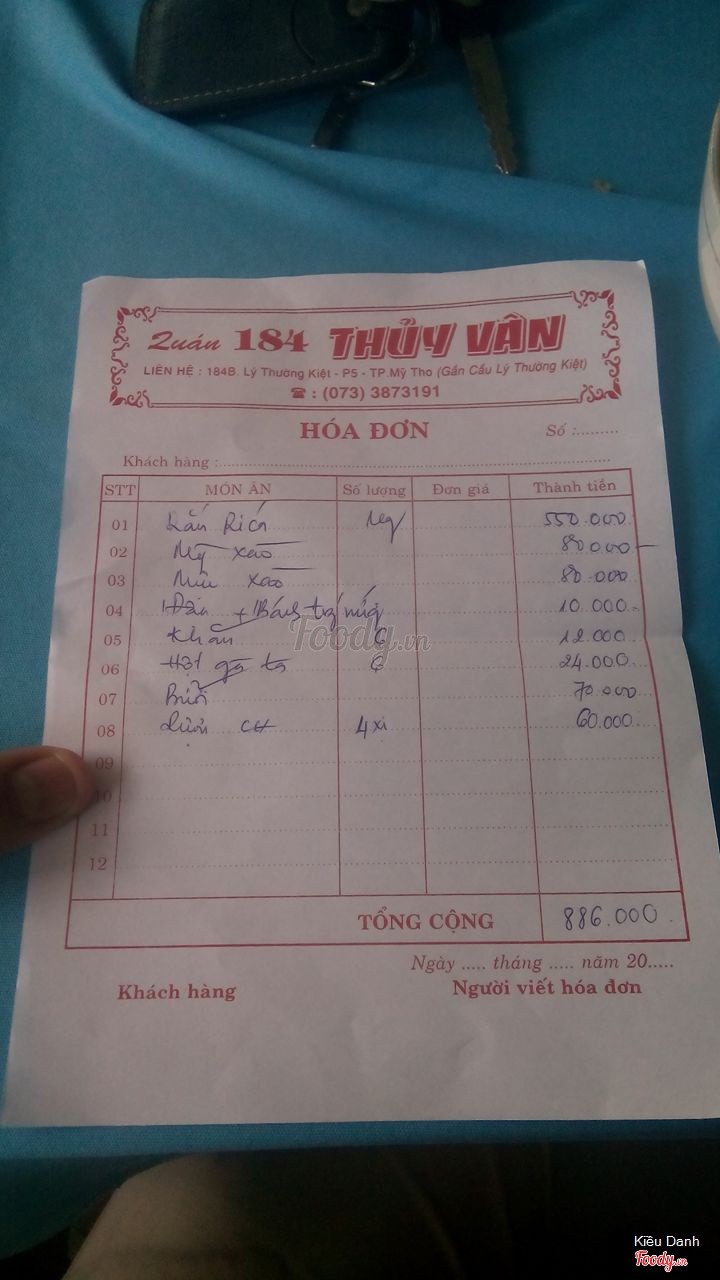 Quán 184 THỦY VÂN
LIÊN HỆ : 184B. Lý Thường Kiệt - P5 - TP.Mỹ Tho (Gần Cầu Lý Thường Kiệt)
☎ : (073) 3873191
HÓA ĐƠN
Số :.........
Khách hàng :
STT MÓN ĂN Số lượng Đơn giá Thành tiền
01 550.000
02 Mỳ xào 80.000
03 xào 80.000
04 + Bánh 10.000
05 Khăn 6 12.000
06 Hột gà ta 6 24.000
07 70.000
08 4 60.000
09
10
11
12
TỔNG CỘNG 886.000
Ngày ..... tháng ..... năm 20.....
Khách hàng Người viết hóa đơn
Foody.vn
Kiều Danh
Foody.vn